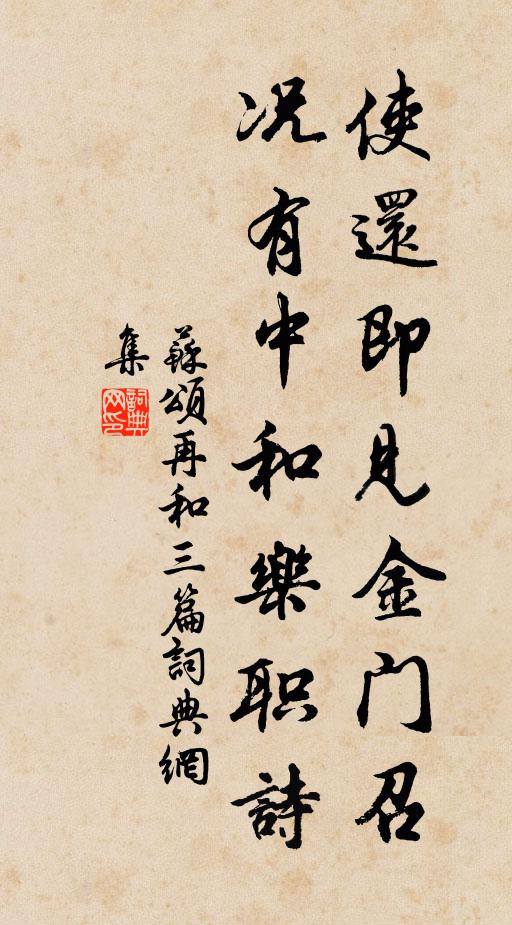 使還即见金门召
况有中和樂职詩
蘇頌再和三篇詞典網
集
詞典網印